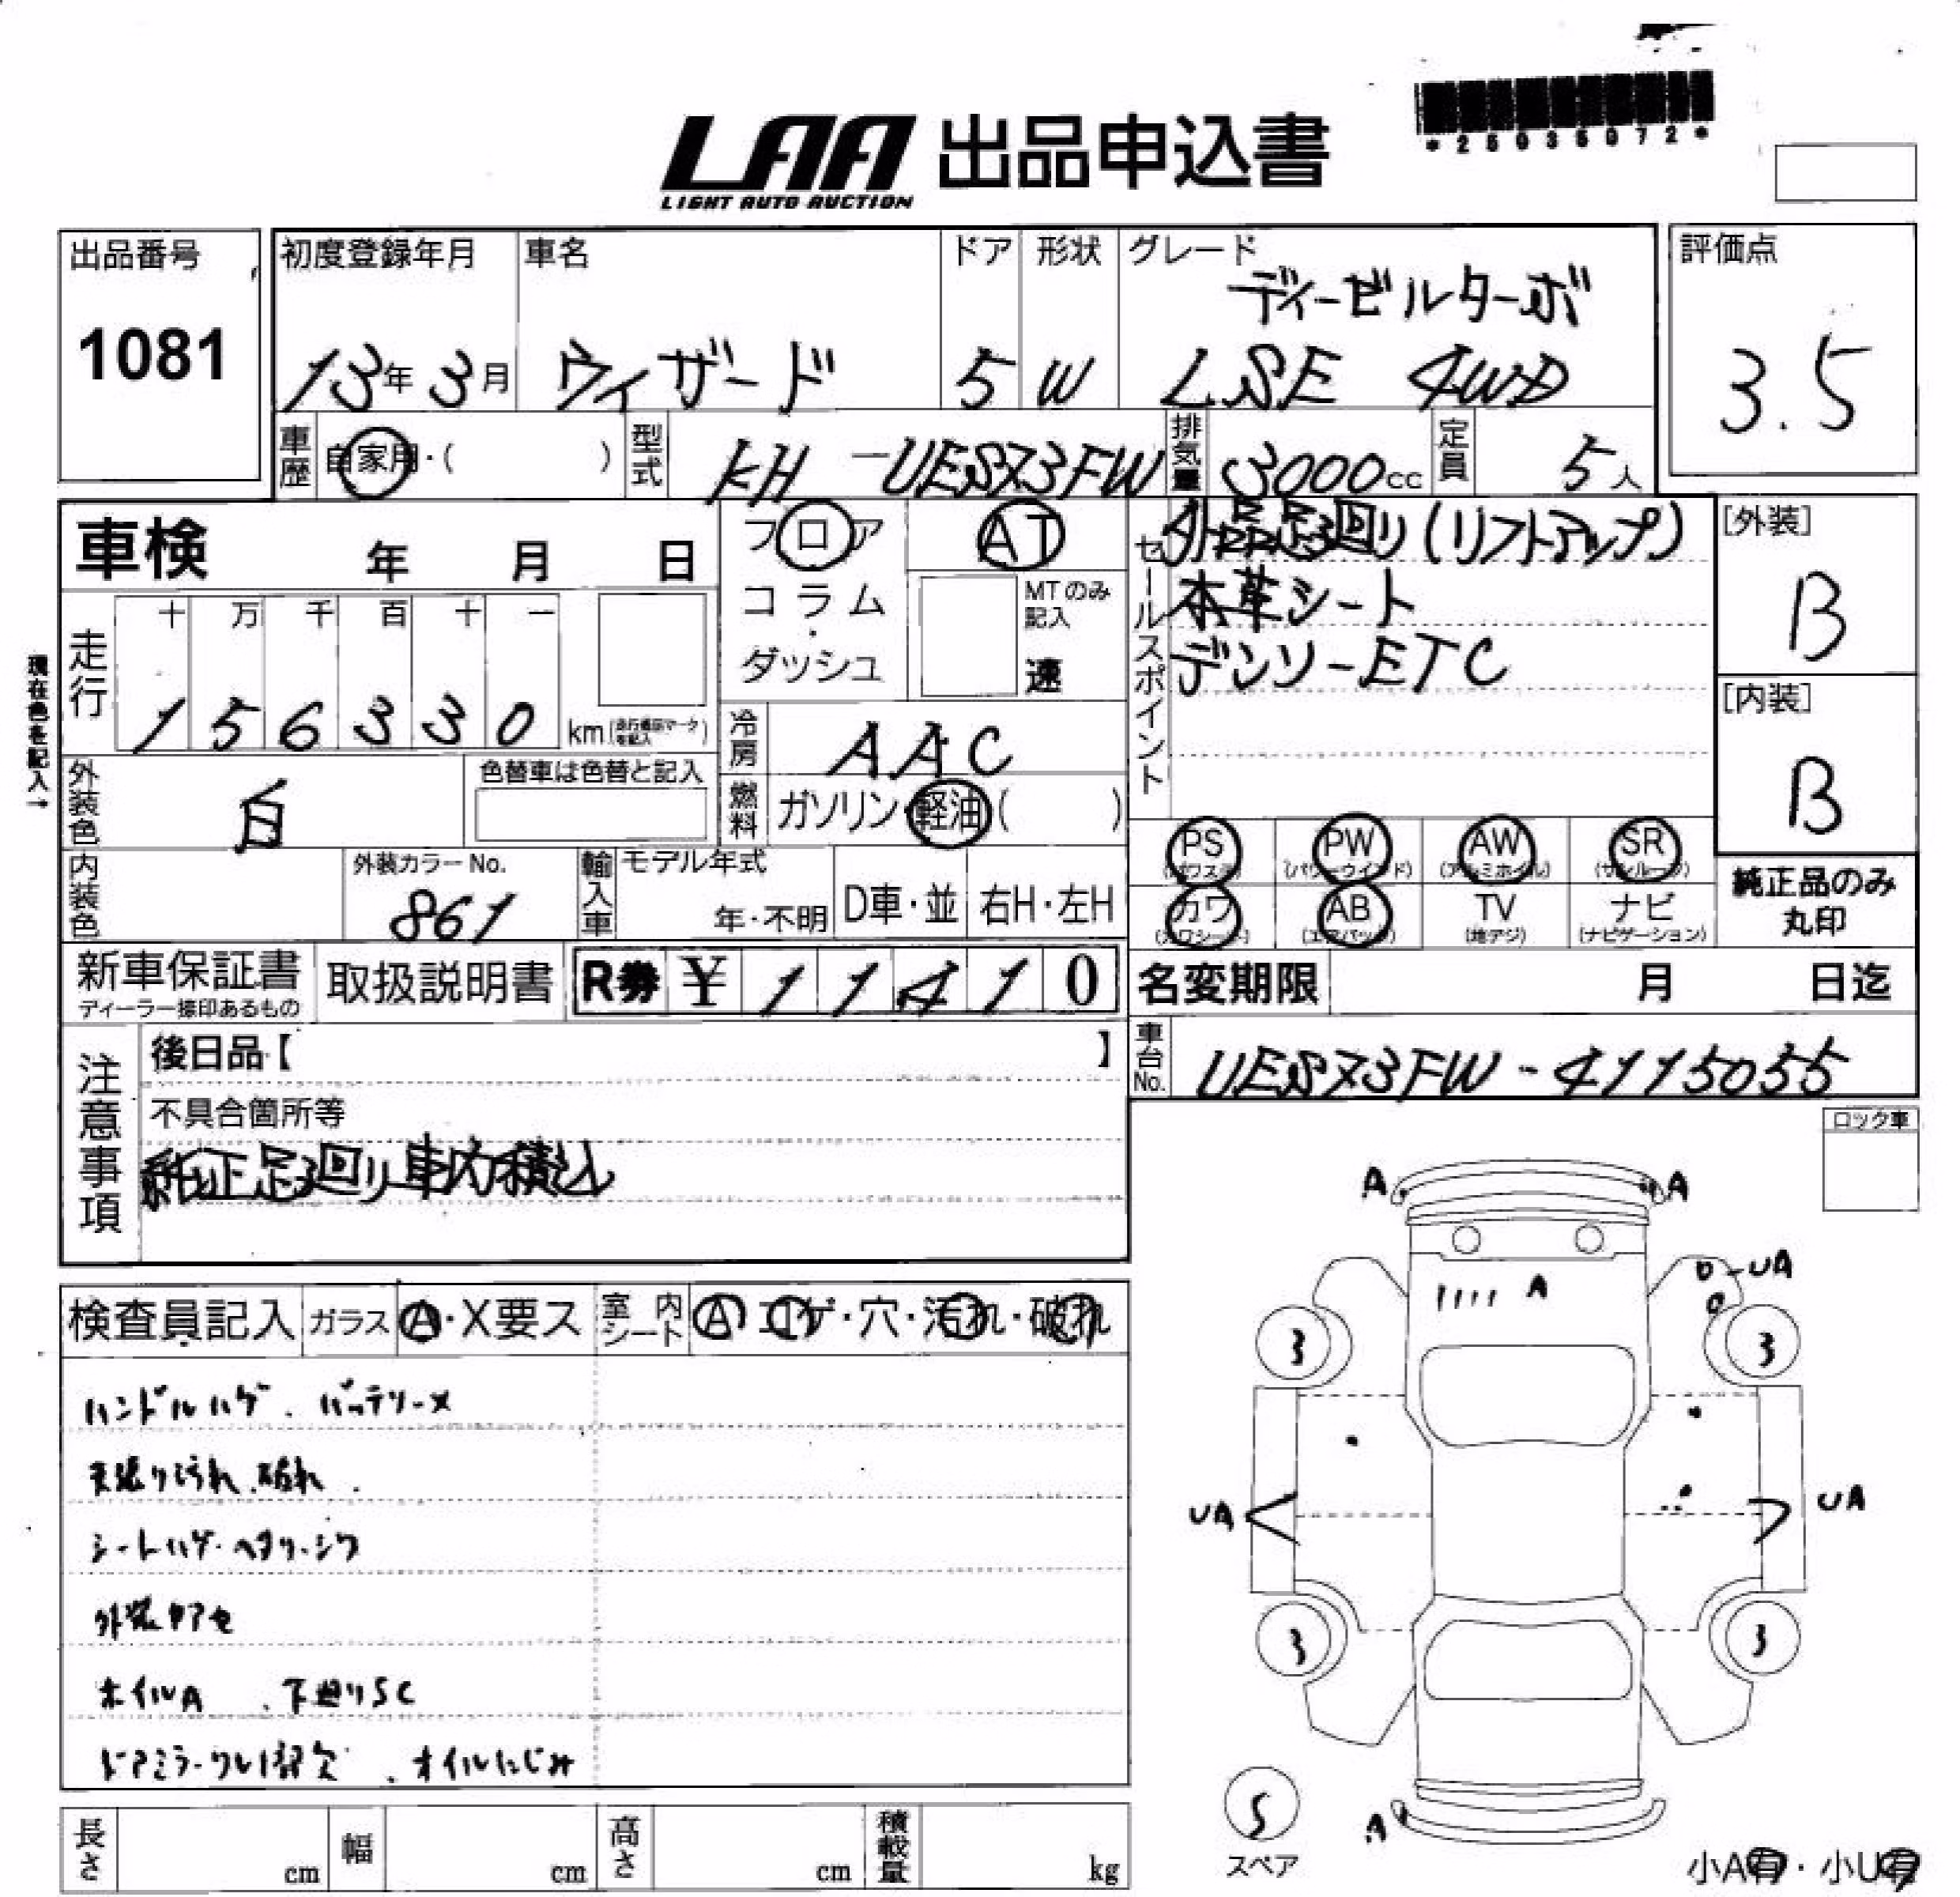 *25036072*
LAA 出品申込書
LIGHT AUTO AUCTION
出品番号
1081
初度登録年月
13年 3月
車名
ウィザード
ドア
5
形状
W
グレード
ディーゼルターボ
LSE 4WD
評価点
3.5
車歴
自家用・( )
型式
KH-UES73FW
排気量
3000cc
定員
5人
車検 年 月 日
フロア
コラム
・
ダッシュ
AT
MTのみ
記入
速
セールスポイント
外品足廻り(リフトアップ)
本革シート
デンソーETC
[外装]
B
[内装]
B
現在色を記入→
走行
十 万 千 百 十 一
1 5 6 3 3 0 km
冷房
AAC
燃料
ガソリン・軽油( )
外装色
白
色替車は色替と記入
内装色
外装カラーNo.
861
輸入車
モデル年式
年・不明
D車・並
右H・左H
PS
PW
AW
SR
カワ
AB
(エアバッグ)
TV
(地デジ)
ナビ
(ナビゲーション)
純正品のみ
丸印
新車保証書
ディーラー捺印あるもの
取扱説明書
R券 ¥ 1 1 4 1 0
名変期限 月 日迄
車台No.
UES73FW-4115055
注意事項
後日品【 】
不具合箇所等
純正足廻り車内積込
ロック車
検査員記入
ガラス
A・X要ス
室内シート
A コゲ・穴・汚れ・破れ
ハンドルハゲ、バッテリーメ
天張りよごれ、破れ
シートハゲ・ヘタリ・シワ
外装色アセ
ホイルA、下廻りSC
ドアミラーワレ1部欠、オイルにじみ
A
A
A
UA
3
3
UA
UA
3
3
A
S
スペア
小A有・小U有
長さ cm
幅 cm
高さ cm
積載量 kg